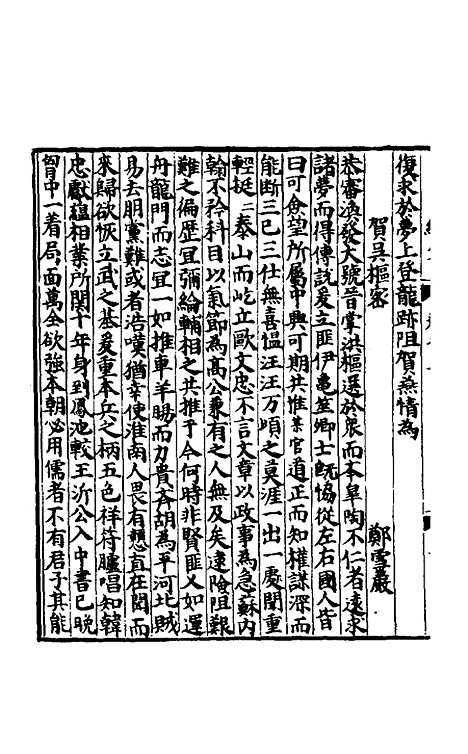 復求於夢上登龍跡阻賀燕情為
賀吳樞密　鄭雪巖
恭審渙發大號晉掌洪樞選於衆而本臯陶不仁者遠求
諸夢而得傅說爰立匪伊龜筮卿士旣恊從左右國人皆
曰可僉望所屬中興可期共惟某官道正而知權謀深而
能斷三已三仕無喜慍汪汪萬頃之莫涯一出一處關重
輕挺二泰山而屹立歐文忠不言文章以政事為急蘇内
翰不矜科目以氣節為高公兼有之人無及矣逺險阻艱
難之徧歷宜彌綸輔相之共推于今何時非賢匪乂如運
舟龍門而忘宜一如推車羊腸而力賁斉胡為平河北賊
易去朋黨難或者浩嘆猶幸使淮南人畏有戇直在閫而
來歸欲恢立武之基爰重本兵之柄五色祥符臚唱知韓
忠獻蘊相業所関十年身到鳳池較王沂公入中書已晚
胷中一着局面萬全欲強本朝必用儒者不有君子其能